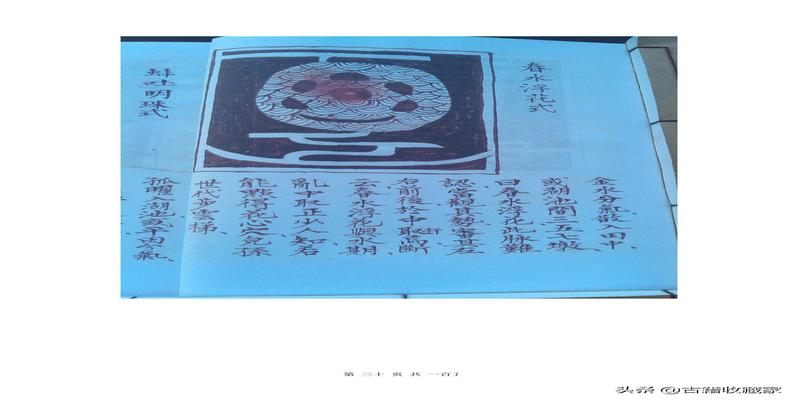 春水浮花式
金水分氣散入田中、
或胡池間三五七墩、
曰春水浮花此脉難
認當觀其勢審其左
右前後於中取斬為斷
云春水浮花喚水期、
亂中取正少人知若
能點得花心穴兒孫
世代步雲梯、
蚌吐明珠式
孤曜入湖池或平田分氣、
第 三十 页 共 一百
头条 @古籍收藏家